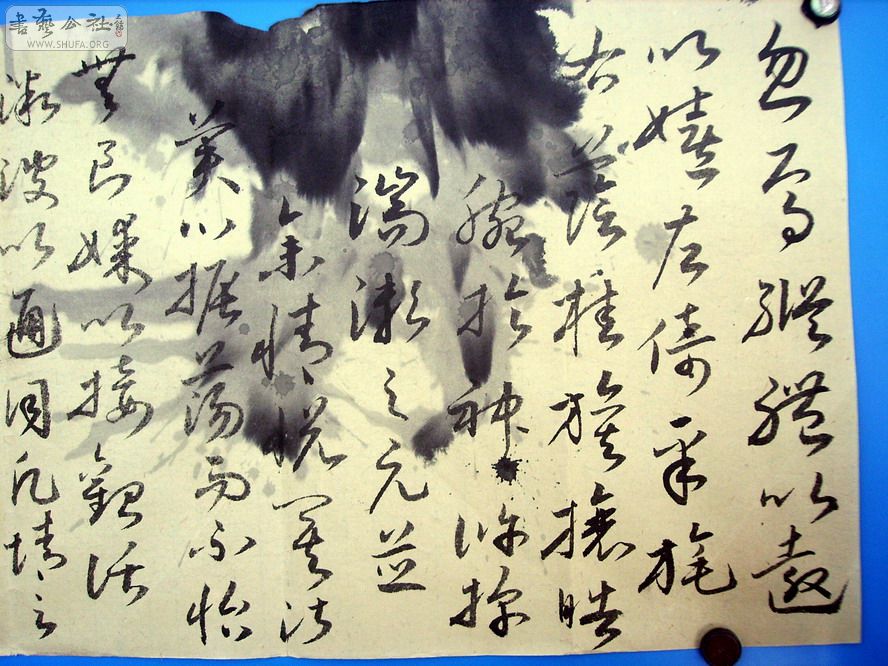 書藝公社
WWW.SHUFA.ORG
忽焉縱體以遨
以嬉左倚采旄
右蔭桂旗攘皓
腕於神滸採
湍瀨之元芝
余情悅其淑
美心振蕩而不怡
無良媒以接歡託
微波以通之